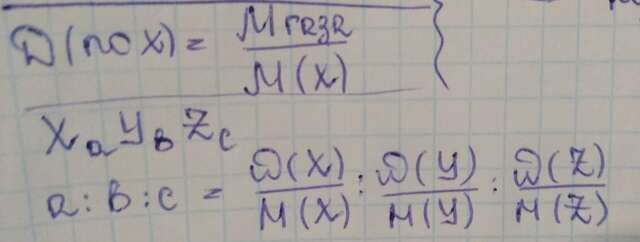 D(по X) = M газа / M(X)
XₐYᵦZ꜀
a : в : c = ω(X)/M(X) : ω(Y)/M(Y) : ω(Z)/M(Z)